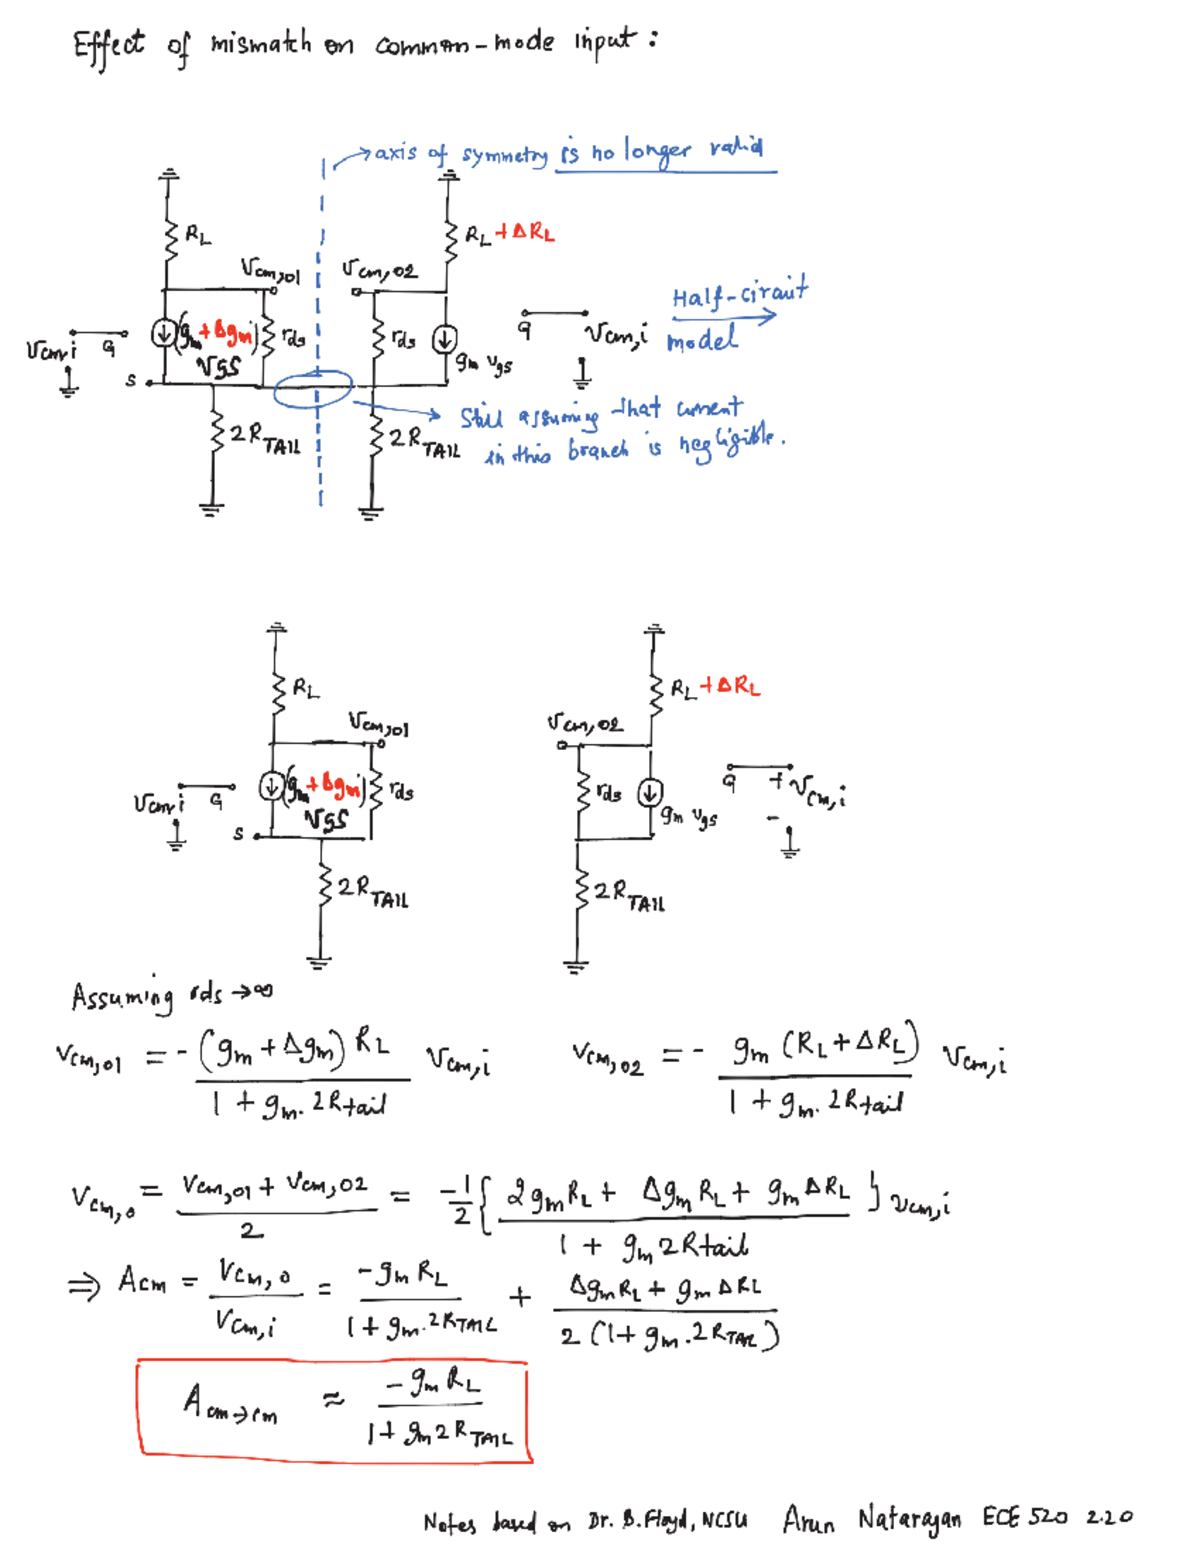 Effect of mismatch on common-mode input :
→ axis of symmetry is no longer valid
RL
RL + ΔRL
Vcm,o1
Vcm,o2
Half-circuit model
(gm + Δgm) VGS
rds
rds
gm vgs
Vcm,i
G
G
Vcm,i
S
2RTAIL
2RTAIL
Still assuming that current
in this branch is negligible.
RL
RL + ΔRL
Vcm,o1
Vcm,o2
Vcm,i
G
(gm + Δgm) VGS
rds
rds
gm vgs
G
+ Vcm,i -
S
2RTAIL
2RTAIL
Assuming rds → ∞
Vcm,o1 = - (gm + Δgm) RL / 1 + gm. 2Rtail Vcm,i
Vcm,o2 = - gm (RL + ΔRL) / 1 + gm. 2Rtail Vcm,i
Vcm,o = Vcm,o1 + Vcm,o2 / 2 = -1/2 { 2gmRL + ΔgmRL + gmΔRL / 1 + gm 2Rtail } vcm,i
⇒ Acm = Vcm,o / Vcm,i = -gmRL / 1 + gm.2RTAIL + ΔgmRL + gmΔRL / 2 (1 + gm.2RTAIL)
Acm→cm ≈ -gmRL / 1 + gm2RTAIL
Notes based on Dr. B. Floyd, NCSU Arun Natarajan ECE 520 2.20